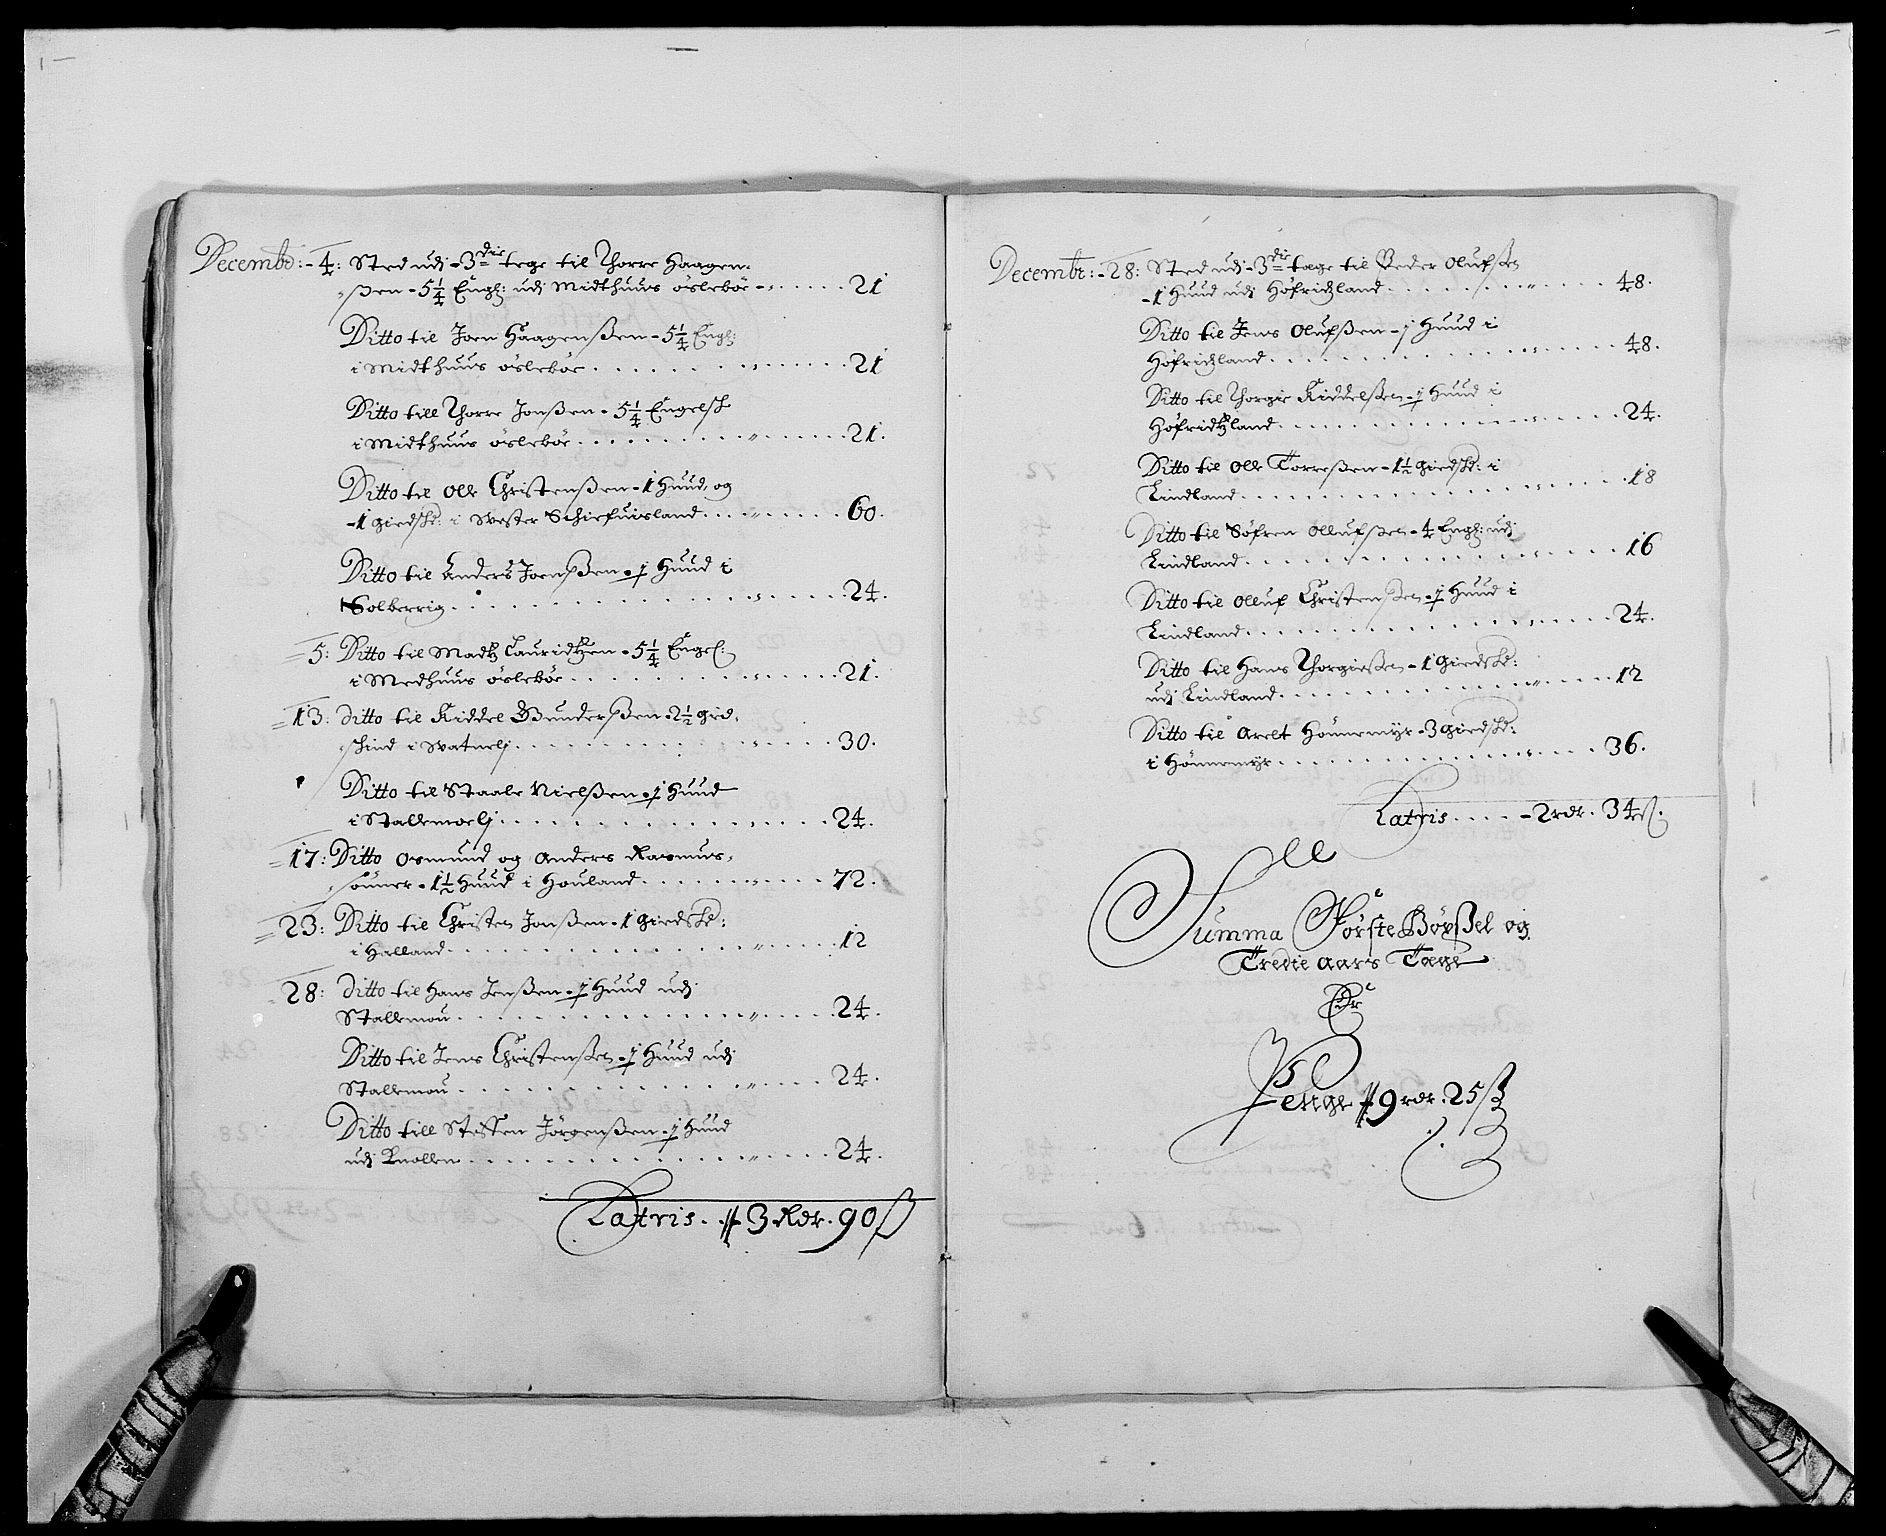 Decembr: - 4: Sted udj - 3die tege til Thorre Haagen-
ßen - 5¼ Engl: udj Midthuus ösleböe - 21
Ditto til Joen Haagenßen - 5¼ Engl:
i Midthuus ösleböe 21
Ditto till Thorre Jonßen - 5¼ Engelsch
i Midthuus ösleböe 21.
Ditto til Olle Christenßen - 1 Huud, og
- 1 giedsk: i Wester Schiefuisland 60.
Ditto til Anders Joenßen - ½ Huud i
Solberrig 24.
5: Ditto til Madtz Lauridtzen - 5¼ Engel:
i Medhuus ösleböe 21.
13: ditto til Kiddel Gunderßen - 2½ gied-
schind i Watnelj 30.
Ditto til Staale Nielßen - ½ Huud
i Stallemoelj 24.
17: Ditto Osmund og Anders Rasmus-
sönner - 1½ Huud i Houland 72.
23: Ditto til Christen Jonßen - 1 giedsk:
i Halland 12
28: ditto til Hans Jenßen - ½ Huud udj
Stallemou 24.
Ditto til Jens Christenßen - ½ Huud udj
Stallemou 24.
Ditto till Steffen Jörgenßen - ½ Huud
udj Knollen 24.
Latris. # 3 Rdr. 90 ß
Decembr: - 28: Sted udj - 3die tage til Peder Olufßen
- 1 Huud udj Höfridtzland 48.
Ditto til Jens Olufßen - 1 Huud i
Höfridtzland 48.
Ditto til Thorgie Kiddelßen - ½ Huud i
Höfridtzland 24.
Ditto til Olle Torreßen - 1½ giedsk: i
Lindland 18
Ditto til Söfren Ollufßen - 4 Engl: udj
Lindland 16
Ditto til Olluf Christenßen - ½ Huud i
Lindland 24.
Ditto til Hans Thorgießen - 1 giedsk:
udj Lindland 12
Ditto til Arelt Hönnemyr - 3 giedsk:
i Hönnemyr 36.
Latris - 2 rdr. 34 ß.
Summa Förste Böxßel og
Tredie Aars Tage
Er
Penge # 9 rdr. 25 ß